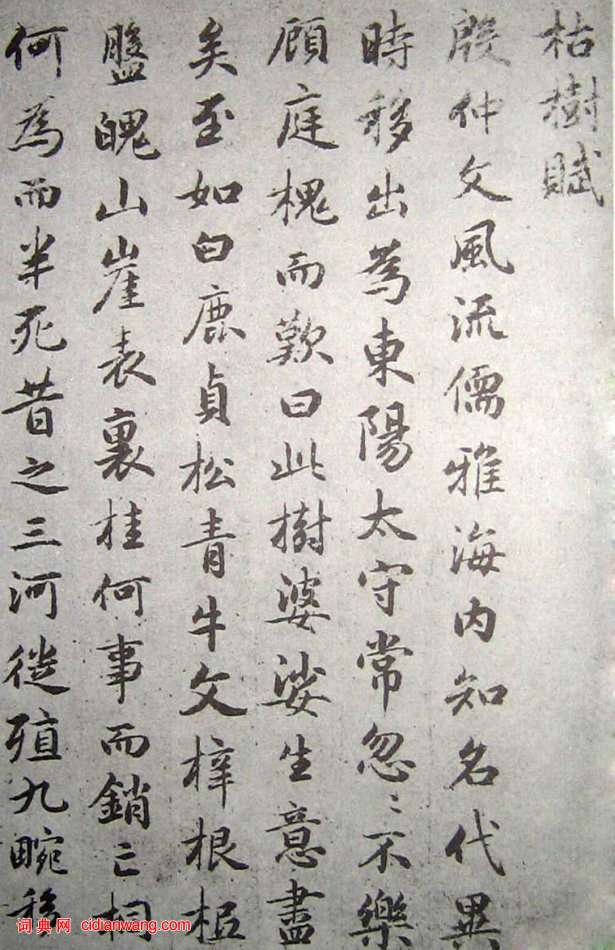 枯樹賦
殷仲文風流儒雅海内知名代異
時移出為東陽太守常忽〻不樂
顧庭槐而歎曰此樹婆娑生意盡
矣至如白鹿貞松青牛文梓根柢
盤魄山崖表裏桂何事而銷亡桐
何為而半死昔之三河徙殖九畹移
词典网 cidianwang.com